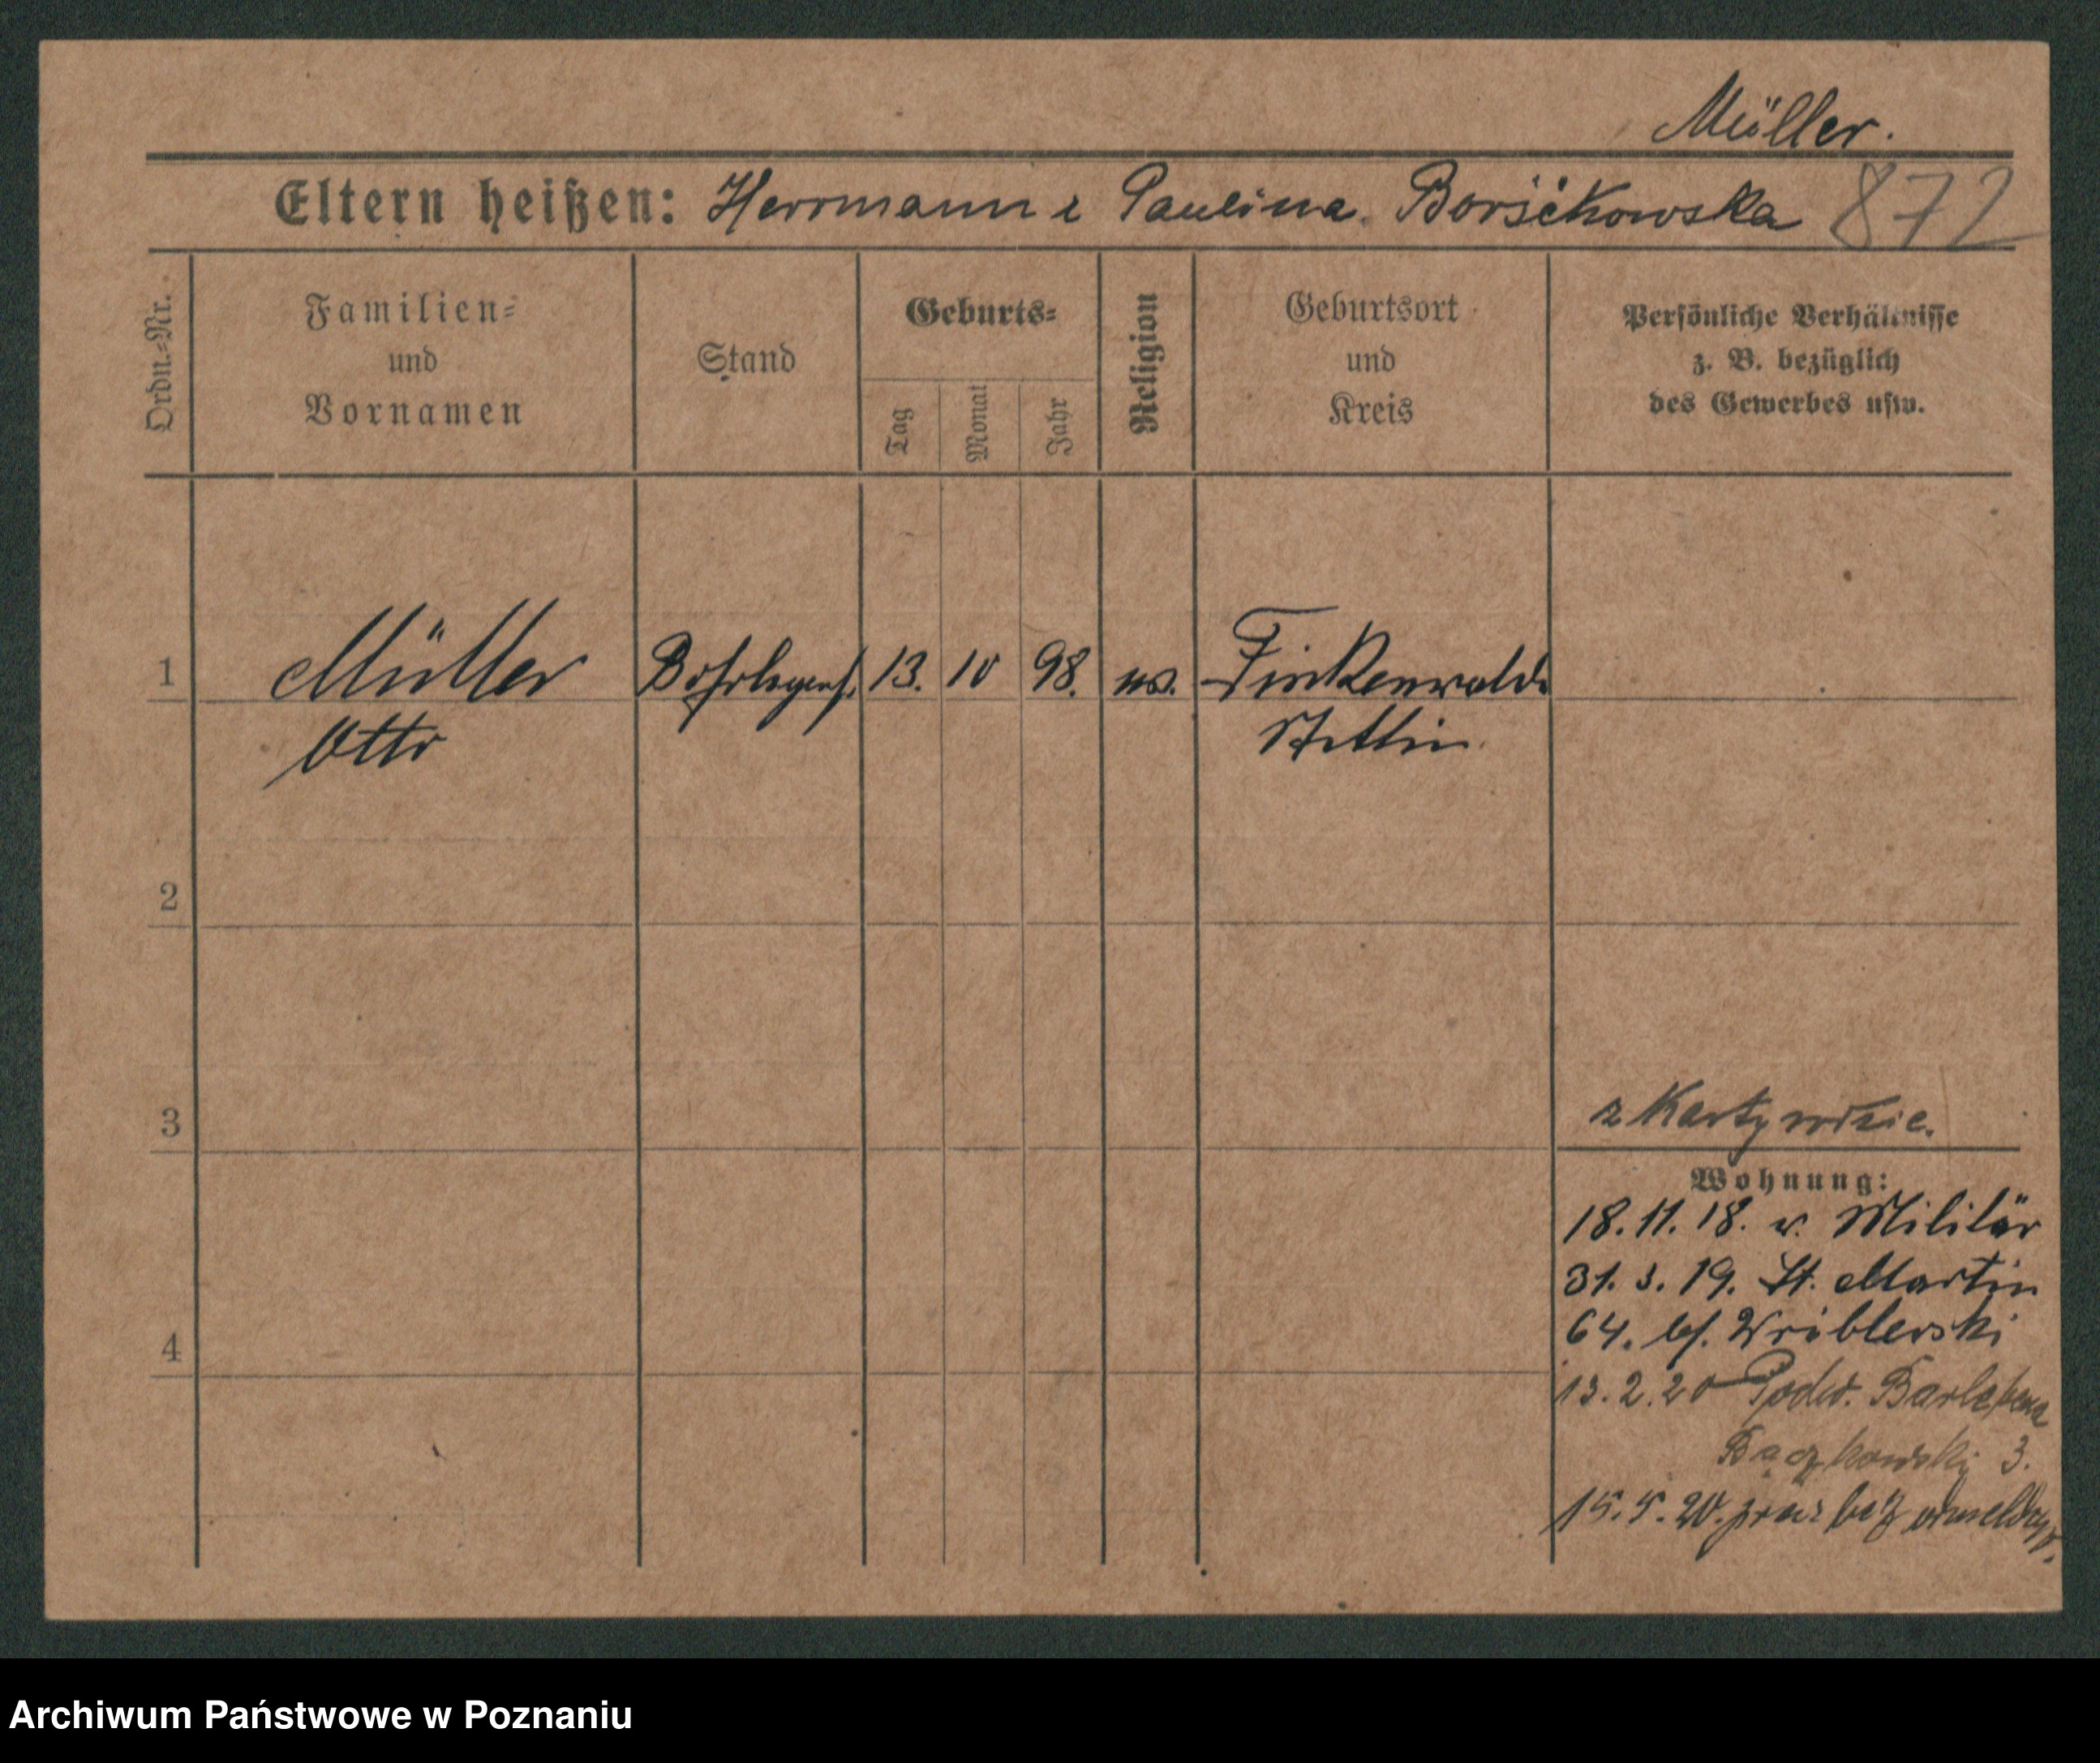 Müller.
Eltern heißen: Herrmann i Paulina Boršikowska 872
Ordn.-Nr.
Familien-
und
Vornamen
Stand
Geburts-
Tag
Monat
Jahr
Religion
Geburtsort
und
Kreis
Persönliche Verhältnisse
z. B. bezüglich
des Gewerbes usw.
1 Müller 13. 10 98. Finkenwalde
Otto Stettin
2
3
z Karty rodzic.
Wohnung:
18.11.18. v. Militär
31.3.19. St. Martin
64. bf. Wróblewski
4
13.2.20 Podw.
Bączkowski 3.
15.5.20. bez
Archiwum Państwowe w Poznaniu